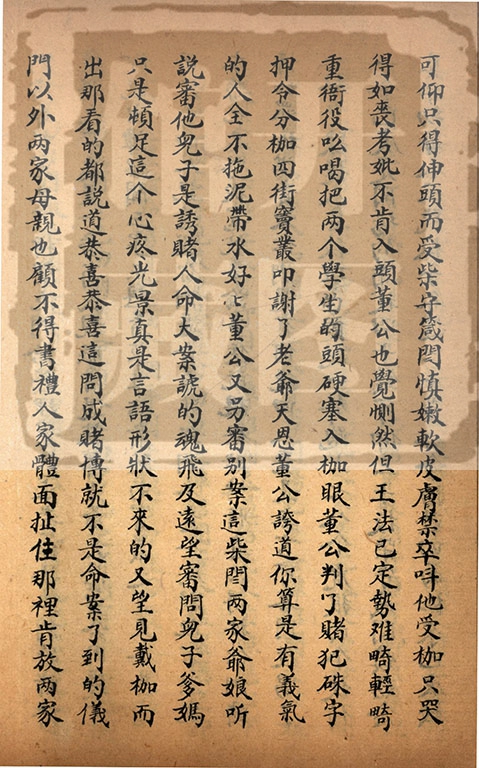 可仰只得伸頭而受柴守箴閆慎嫩軟皮膚禁卒呌他受枷只哭
得如喪考妣不肯入頭董公也覺惻然但王法已定勢难畸輕畸
重衙役吆喝把两个學生的頭硬塞入枷眼董公判了賭犯硃字
押令分枷四街竇叢叩謝了老爺天恩董公誇道你算是有義氣
的人全不拖泥帶水好匕董公又另審别案這柴閆两家爺娘听
説審他兒子是誘賭人命大案諕的魂飛及遠望審問兒子爹媽
只是頓足這个心疼光景真是言語形狀不來的又望見戴枷而
出那看的都説道恭喜恭喜這問成賭博就不是命案了到的儀
門以外两家母親也顧不得書禮人家體面扯住那裡肯放两家